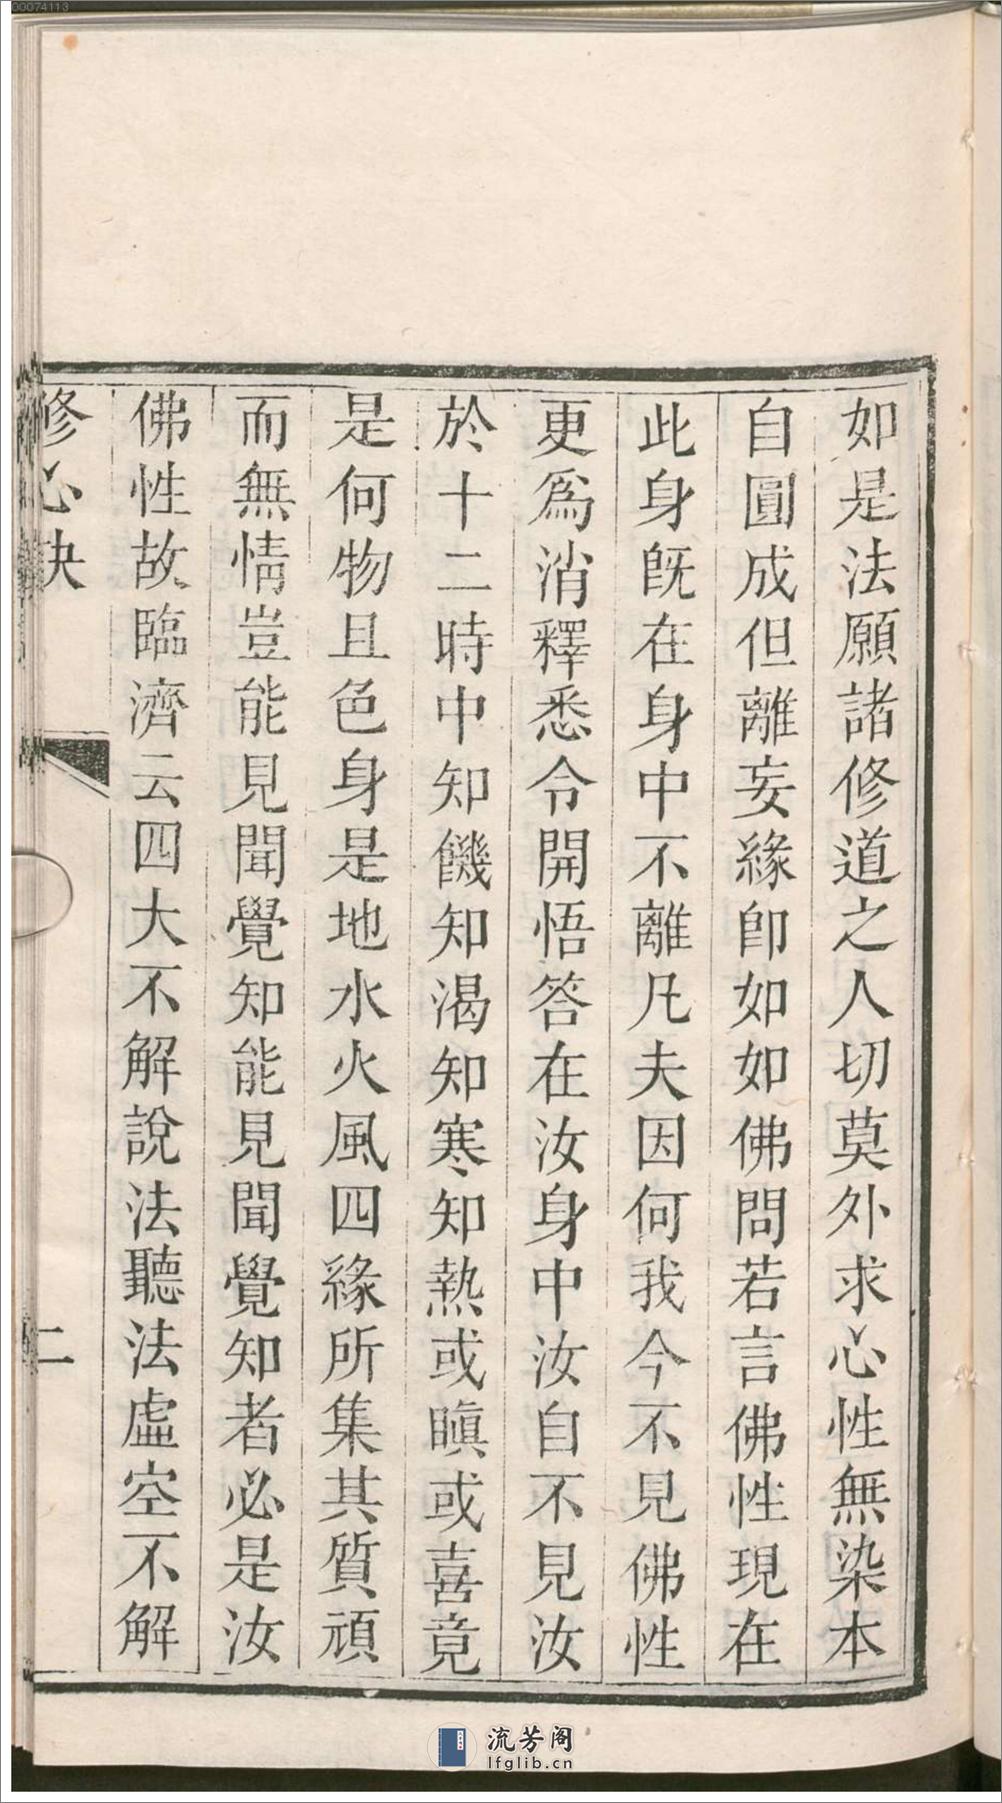 00074113
如是法願諸修道之人切莫外求心性無染本
自圓成但離妄緣卽如如佛問若言佛性現在
此身旣在身中不離凡夫因何我今不見佛性
更爲消釋悉令開悟答在汝身中汝自不見汝
於十二時中知饑知渴知寒知熱或瞋或喜竟
是何物且色身是地水火風四緣所集其質頑
而無情豈能見聞覺知能見聞覺知者必是汝
佛性故臨濟云四大不解說法聽法虛空不解
修心訣
二
流芳阁
lfglib.cn